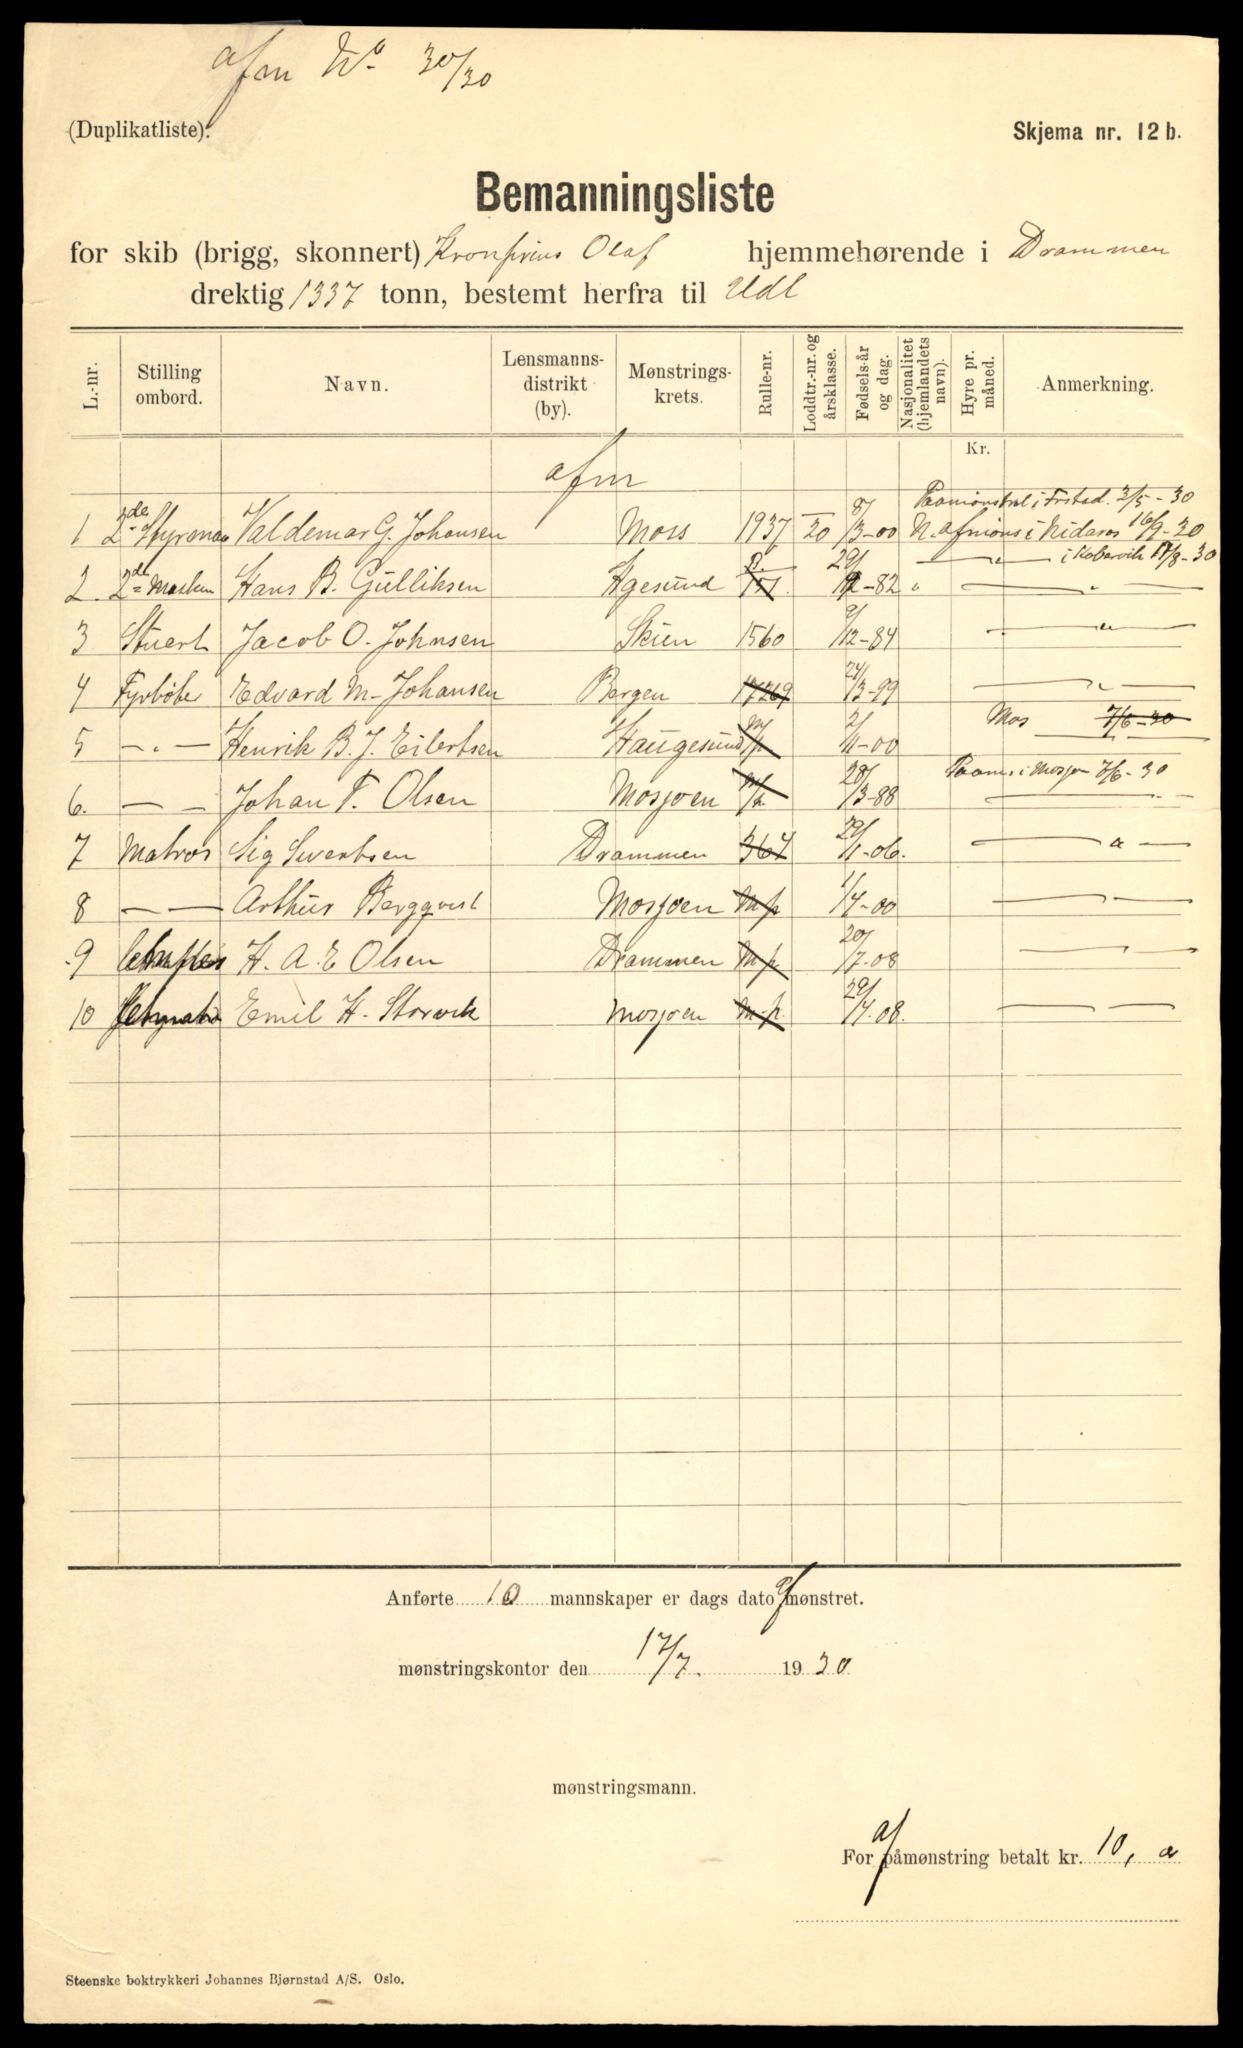 afm No 30/30
(Duplikatliste).
Skjema nr. 12 b.
Bemanningsliste
for skib (brigg, skonnert) Kronprins Olaf hjemmehørende i Drammen
drektig 1337 tonn, bestemt herfra til Udl
L.-nr. Stilling ombord. Navn. Lensmannsdistrikt (by). Mønstringskrets. Rulle-nr. Loddtr.-nr. og årsklasse. Fødsels-år og dag. Nasjonalitet (hjemlandets navn). Hyre pr. måned. Anmerkning.
Kr.
afm
Paamönstret i Frstad. 3/5-30
1 2de Styrman Valdemar G. Johansen Moss 1937 20 8/3-00 N. afmöns i Nidaros 16/9-30
i Kobervik 17/8-30
2 2de Maskin Hans B. Gulliksen Hgesund 29/12-82 " — " —
3 Stuert Jacob O. Johnsen Skien 1560 9/12-84 — " —
4 Fyrböter Edvard M. Johansen Bergen 17269 24/3-99 — " —
5 — " — Henrik B. J. Eilertsen Haugesund m/p 2/11-00 Mos 7/6-30
Paams i Mosjøen 7/6-30
6. — — Johan F. Olsen Mosjoen 28/3-88 — " —
7 Matros Sig Sivertsen Drammen 367 29/11-06. — " —
8 — — Arthur Bergqvist Mosjoen M.p. 1/4-00 — —
9 H. A. E Olsen Drammen M.p. 20/7-08 — —
10 Emil H. Storvik Mosjoen M.p. 29/4-08. — —
Anførte 10 mannskaper er dags dato af mønstret.
mønstringskontor den 17/7. 1930
mønstringsmann.
For af påmønstring betalt kr. 10, a
Steenske boktrykkeri Johannes Bjørnstad A/S. Oslo.